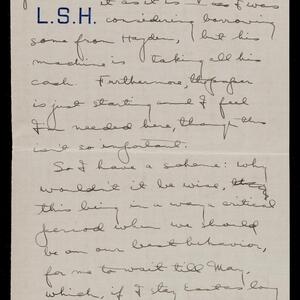 it as it is I as I was
L.S.H. considering borrowing
some from Hayden, but his
machine is taking all his
cash. Furthermore,
is just starting and I feel
I'm needed here, though this
isn't so important.
So I have a scheme: why
wouldn't it be wise,
this being in a way a critical
period when we should
be on our best behavior,
for me to wait till May,
which, if I stay Easter